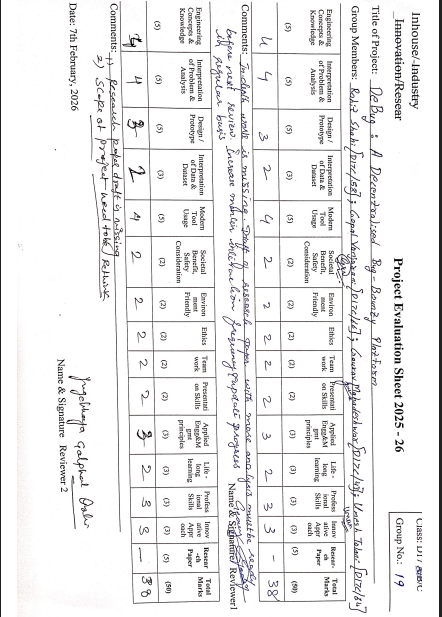 Inhouse/-Industry
Innovation/Resear
Project Evaluation Sheet 2025 - 26
Class: D17
Group No.: 19
Title of Project: DeBug: A Decentralised Bug-Bounty Platform
Group Members: Rohit Shahi [D17C/58]; Gopal [D17C/66]; Gaurav Mahadeshwar [D17C/41]; Umesh Tolani [D17C/64]
Engineering Concepts & Knowledge
Interpretation of Problem & Analysis
Design / Prototype
Interpretation of Data & Dataset
Modern Tool Usage
Societal Benefit, Safety Consideration
Environ ment Friendly
Ethics
Team work
Presentati on Skills
Applied Engg&M gmt principles
Life - long learning
Profess ional Skills
Innov ative Appr oach
Resear -ch Paper
Total Marks
(5) (5) (5) (3) (5) (2) (2) (2) (2) (2) (3) (3) (3) (3) (5) (50)
4 4 3 2 4 2 2 2 2 2 3 2 3 3 - 38
Comments: Indepth work is missing. Draft of research paper with more analysis must be ready
before next review. Increase frequency progress
regular basis
Name & Signature Reviewer1
Engineering Concepts & Knowledge
Interpretation of Problem & Analysis
Design / Prototype
Interpretation of Data & Dataset
Modern Tool Usage
Societal Benefit, Safety Consideration
Environ ment Friendly
Ethics
Team work
Presentati on Skills
Applied Engg&M gmt principles
Life - long learning
Profess ional Skills
Innov ative Appr oach
Resear -ch Paper
Total Marks
(5) (5) (5) (3) (5) (2) (2) (2) (2) (2) (3) (3) (3) (3) (5) (50)
4 4 3 2 4 2 2 2 2 2 3 2 3 3 - 38
Comments: 1) Research paper draft is missing
2) Scope of project need to be Rethink
Date: 7th February, 2026
Name & Signature Reviewer 2